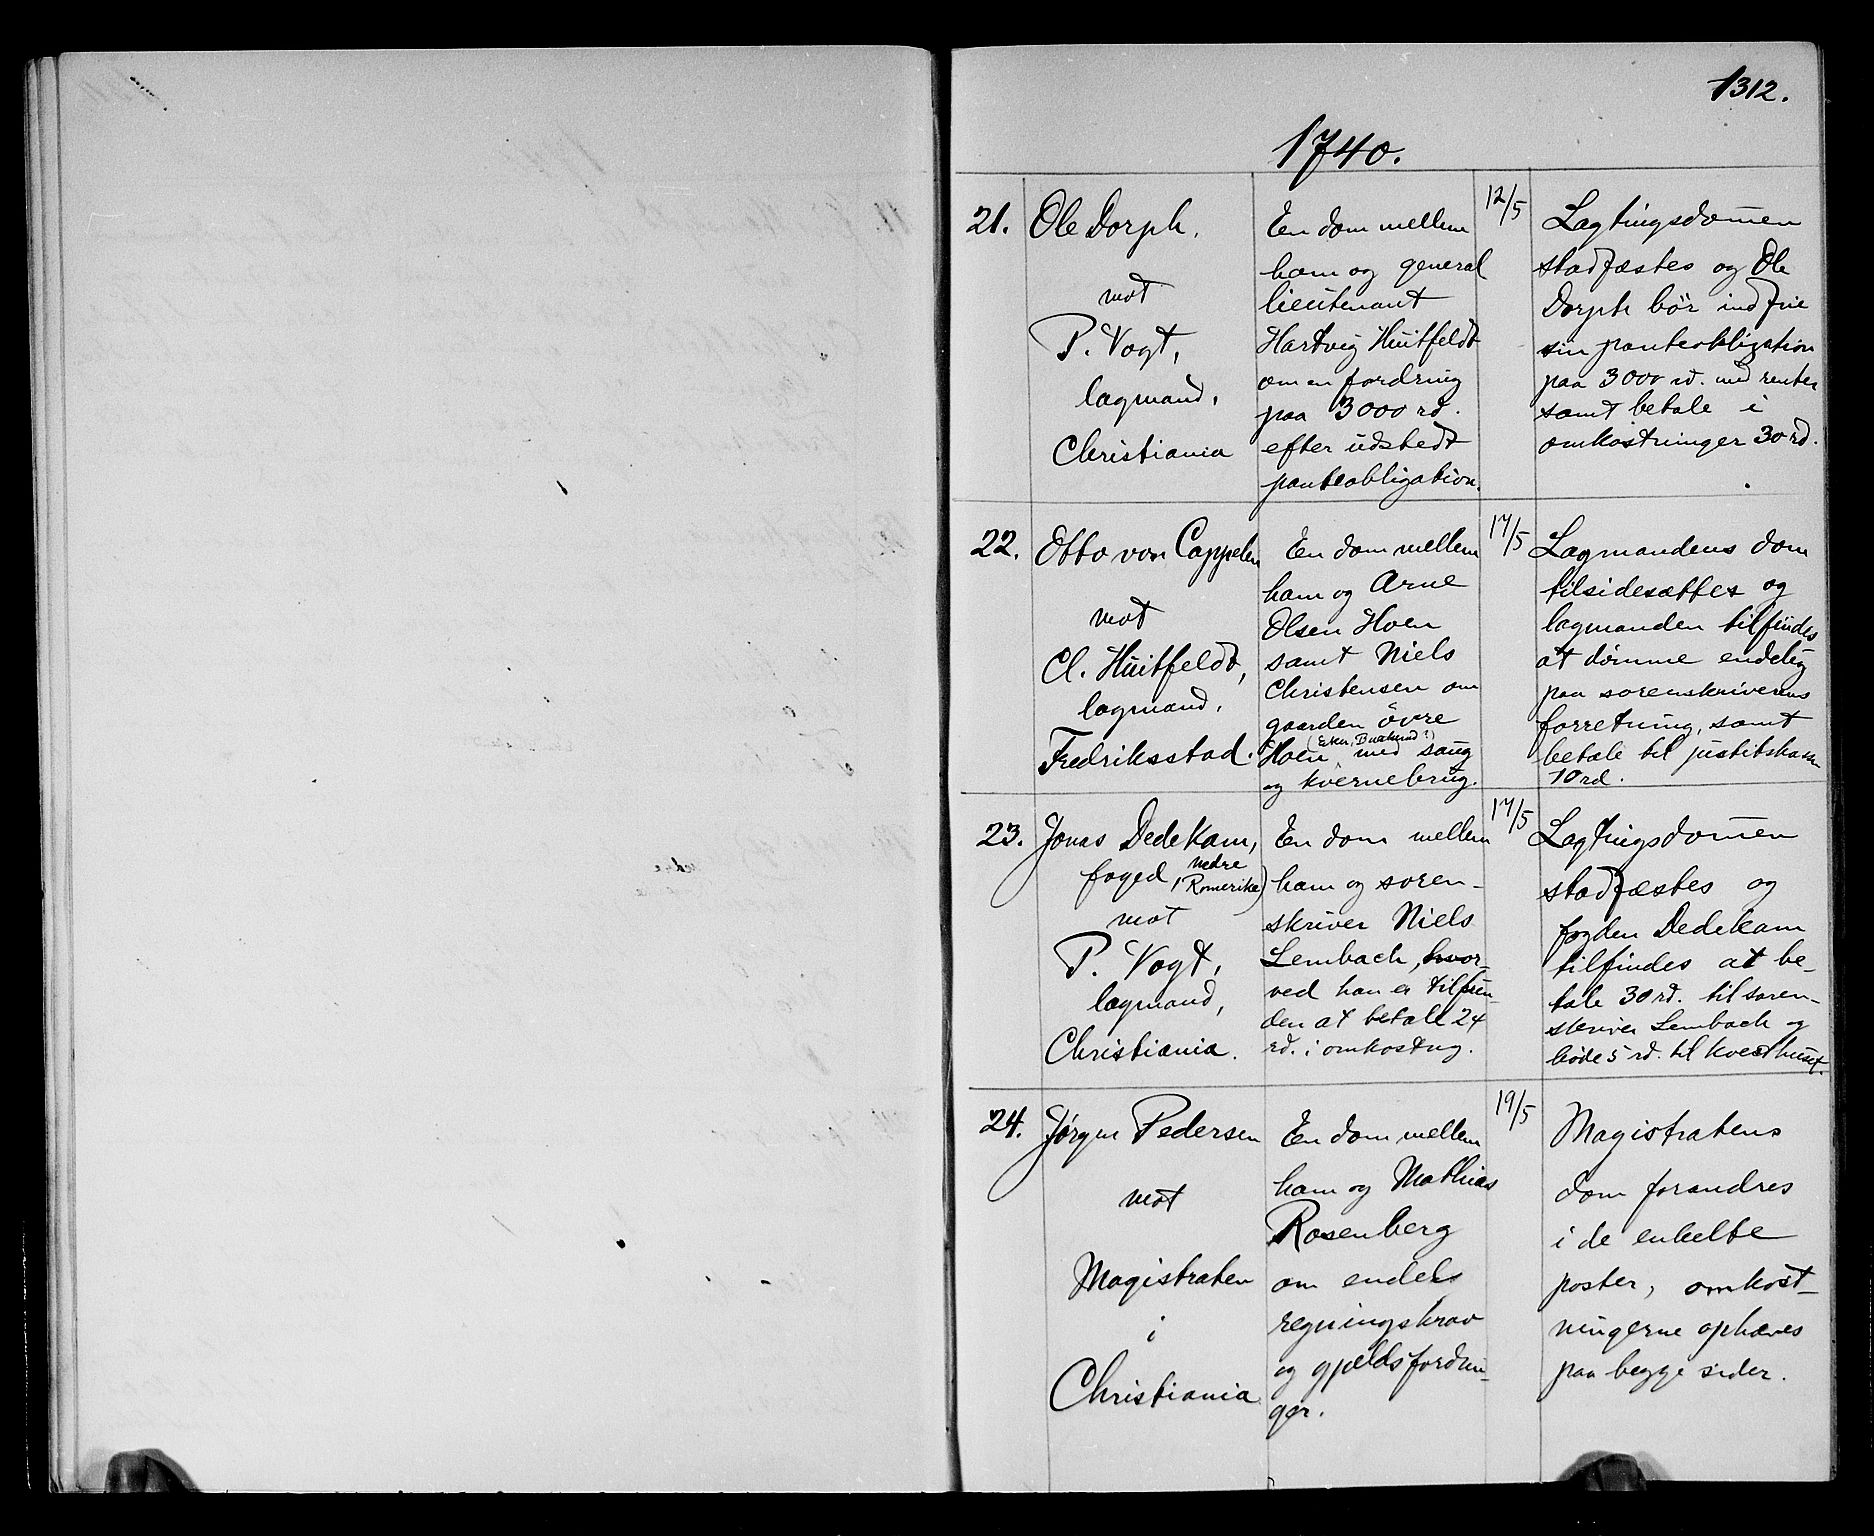 1312.
1740.
21. Ole Dorph.
mot
P. Vogt,
lagmand,
Christiania
En dom mellem
ham og general
lieutenant
Hartvig Huitfeldt
om en fordring
paa 3000 rd.
efter udstedt
panteobligation.
12/5
Lagtingsdom̄en
stadfæstes og Ole
Dorph bör indfrie
sin panteobligation
paa 3000 rd. med renter
samt betale i
omkostninger 30 rd.
22. Otto von Cappelen
mot
Cl. Huitfeldt,
lagmand,
Fredriksstad.
En dom mellem
ham og Arne
Olsen Hoen
samt Niels
Christensen om
gaarden övre
(Eker, Buskerud?)
Hoen, med saug
og kvernebrug.
17/5
Lagmandens dom
tilsidesættes og
lagmanden tilfindes
at dömme endelig
paa sorenskriverens
forretning, samt
betale til justitskassen
10 rd.
23. Jonas Dedekam,
foged, (nedre
Romerike)
mot
P. Vogt,
lagmand,
Christiania.
En dom mellem
ham og soren-
skriver Niels
Lembach, hvor-
ved han er tilfun-
den at betale 24
rd. i omkostng.
17/5
Lagtingsdom̄en
stadfæstes og
fogden Dedekam
tilfindes at be-
tale 30 rd. til soren-
skriver Lembach og
böde 5 rd. til kvesthuset.
24. Jørgen Pedersen
mot
Magistraten
i
Christiania
En dom mellem
ham og Mathias
Rosenberg
om endels
regningskrav
og gjældsfordrin-
ger.
19/5
Magistratens
dom forandres
i de enkelte
poster, omkost-
ningerne ophæves
paa begge sider.